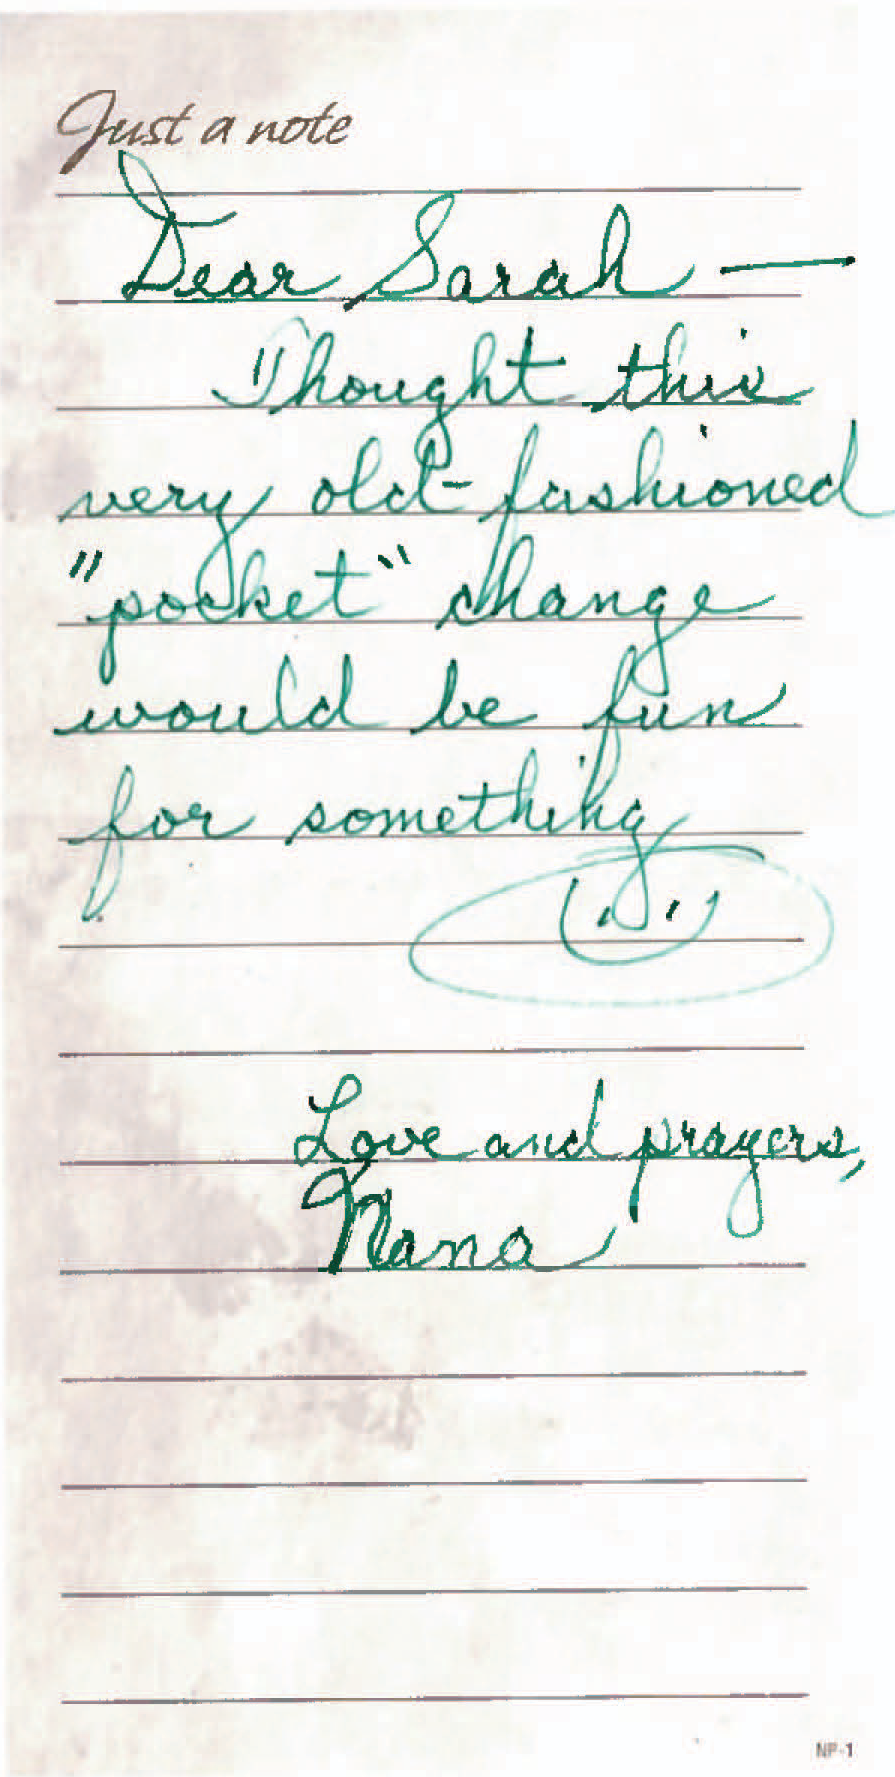 Just a note
Dear Sarah —
Thought this
very old-fashioned
"pocket" change
would be fun
for something
Love and prayers,
Nana
NP-1